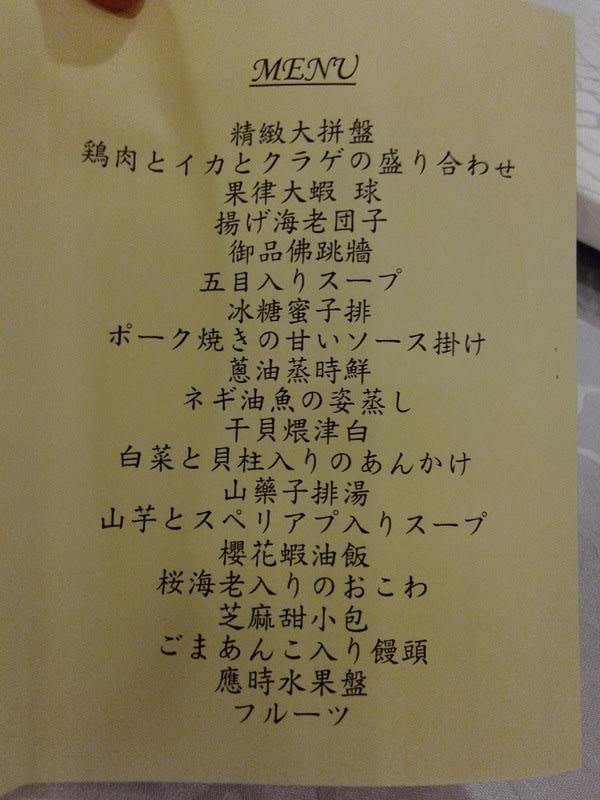 MENU
精緻大拼盤
鶏肉とイカとクラゲの盛り合わせ
果律大蝦 球
揚げ海老団子
御品佛跳牆
五目入りスープ
冰糖蜜子排
ポーク焼きの甘いソース掛け
蔥油蒸時鮮
ネギ油魚の姿蒸し
干貝煨津白
白菜と貝柱入りのあんかけ
山藥子排湯
山芋とスペリアプ入りスープ
櫻花蝦油飯
桜海老入りのおこわ
芝麻甜小包
ごまあんこ入り饅頭
應時水果盤
フルーツ